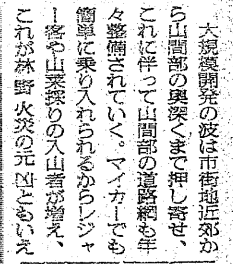 大規模開発の波は市街地近郊か
ら山間部の奥深くまで押し寄せ、
これに伴って山間部の道路網も年
々整備されていく。マイカーでも
簡単に乗り入れられるからレジャ
ー客や山菜採りの入山者が増え、
これが林野火災の元凶ともいえ